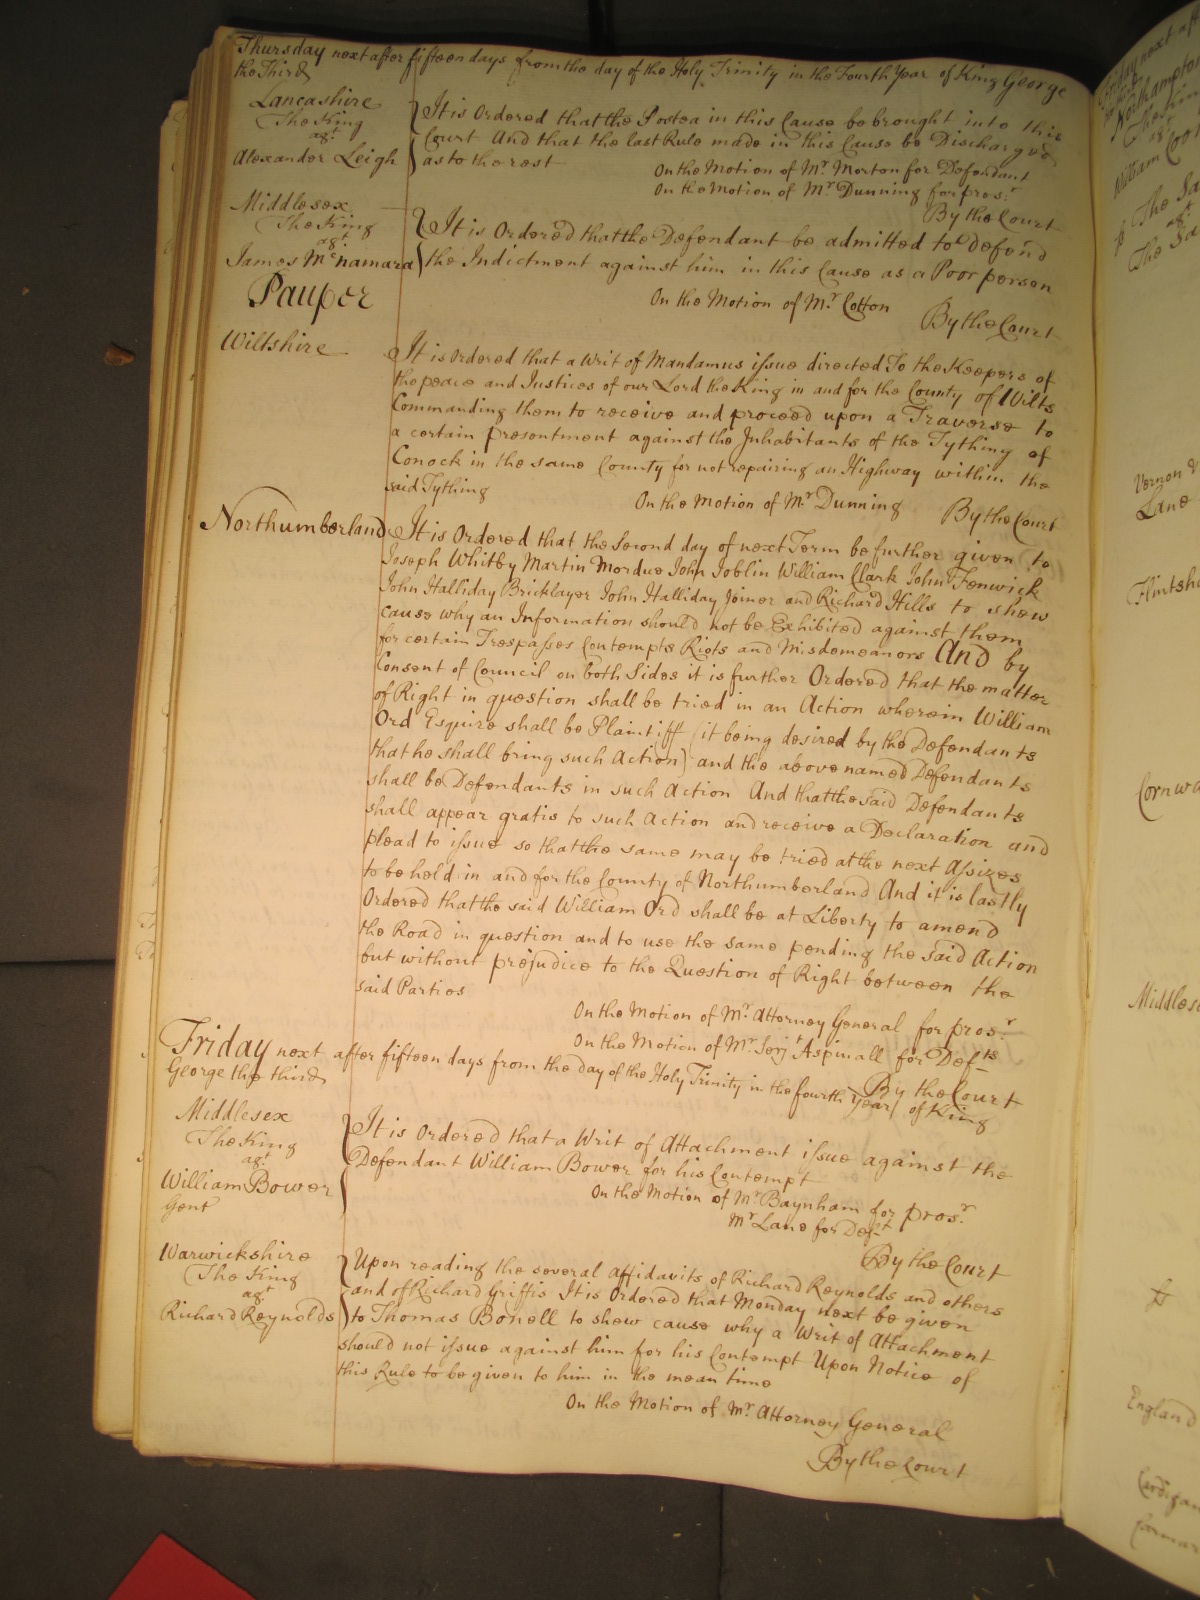 Thursday next after fifteen days from the day of the Holy Trinity in the Fourth Year of King George
the Third
Lancashire
The King
agt
Alexander Leigh
It is Ordered that the Postea in this Cause be brought into this
Court And that the last Rule made in this Cause be Discharged
as to the rest
On the Motion of Mr. Morton for Defendant
On the Motion of Mr. Dunning for prosr.
By the Court
Middlesex
The King
agt.
James Mcnamara
Pauper
It is Ordered that the Defendant be admitted to defend
the Indictment against him in this Cause as a Poor person
On the Motion of Mr. Cotton
By the Court
Wiltshire
It is Ordered that a Writ of Mandamus issue directed To the Keepers of
the peace and Justices of our Lord the King in and for the County of Wilts
Commanding them to receive and proceed upon a Traverse to
a certain presentment against the Inhabitants of the Tything of
Conock in the same County for not repairing an Highway within the
said Tything
On the Motion of Mr. Dunning
By the Court
Northumberland
It is Ordered that the Second day of next Term be further given to
Joseph Whitby Martin Mordue John Joblin William Clark John Fenwick
John Halliday Bricklayer John Halliday Joiner and Richard Hills to shew
cause why an Information should not be Exhibited against them
for certain Trespasses Contempts Riots and Misdemeanors And by
Consent of Council on both Sides it is further Ordered that the matter
of Right in question shall be tried in an Action wherein William
Ord Esquire shall be Plaintiff (it being desired by the Defendants
that he shall bring such Action) and the above named Defendants
shall be Defendants in such Action And that the said Defendants
shall appear gratis to such Action and receive a Declaration and
plead to issue so that the same may be tried at the next Assizes
to be held in and for the County of Northumberland And it is lastly
Ordered that the said William Ord shall be at Liberty to amend
the Road in question and to use the same pending the said Action
but without prejudice to the Question of Right between the
said Parties
On the Motion of Mr. Attorney General for prosr.
On the Motion of Mr. Serjt Aspinall for Defts
By the Court
Friday next after fifteen days from the day of the Holy Trinity in the fourth Year of King
George the third
Middlesex
The King
agt
William Bower
Gent
It is Ordered that a Writ of Attachment issue against the
Defendant William Bower for his Contempt
On the Motion of Mr. Baynham for prosr.
Mr Lane for Deft
By the Court
Warwickshire
The King
agt
Richard Reynolds
Upon reading the several affidavits of Richard Reynolds and others
and of Richard Griffis It is Ordered that Monday next be given
to Thomas Bonell to shew cause why a Writ of Attachment
should not issue against him for his Contempt Upon Notice of
this Rule to be given to him in the mean time
On the Motion of Mr. Attorney General
By the Court
Friday next
William
The
agt
The
Vernon
Lane
Middlesex
England